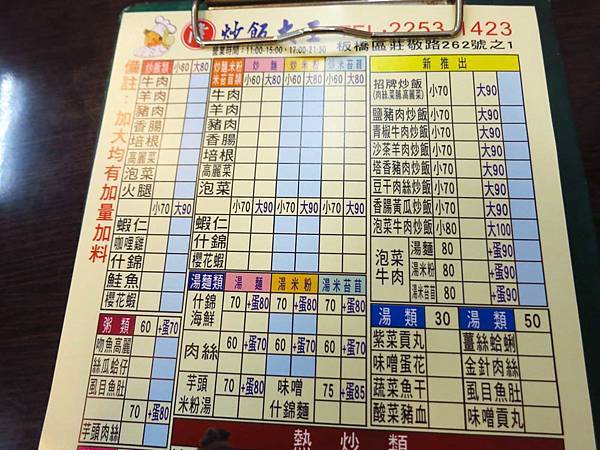 炒飯大王 TEL:2253-1423
營業時間：11:00-15:00‧17:00-21:30 板橋區莊敬路262號之1
備註：加大均有加量加料
炒飯類 小60 大80
牛肉
羊肉
豬肉
香腸
培根
高麗菜
泡菜
火腿
小70 大90
蝦仁
咖哩雞
什錦
鮭魚
櫻花蝦
粥類 60 +蛋70
吻魚高麗
絲瓜蛤仔
虱目魚肚
70 +蛋80
芋頭肉絲
炒麵米粉 米苔苜類 炒麵 炒米粉 炒米苔苜
小60 大80 小60 大80 小60 大80
牛肉
羊肉
豬肉
香腸
培根
高麗菜
泡菜
小70 大90 小70 大90 小70 大90
蝦仁
什錦
櫻花蝦
湯麵類 湯麵 湯米粉 湯米苔苜
什錦海鮮 70 +蛋80 70 +蛋80 70 +蛋80
肉絲 60 +蛋70 60 +蛋70 60 +蛋70
芋頭米粉湯 70 +蛋80 味噌什錦麵 75 +蛋85
新推出
招牌炒飯 小70 大90
(肉絲菜脯高麗菜)
鹽豬肉炒飯 小70 大90
青椒牛肉炒飯 小70 大90
沙茶羊肉炒飯 小70 大90
塔香豬肉炒飯 小70 大90
豆干肉絲炒飯 小70 大90
香腸黃瓜炒飯 小70 大90
泡菜牛肉炒飯 小80 大100
泡菜牛肉 湯麵 80 +蛋90
湯米粉 80 +蛋90
湯米苔苜 80 +蛋90
湯類 30 湯類 50
紫菜貢丸 薑絲蛤蜊
味噌蛋花 金針肉絲
蔬菜魚干 虱目魚肚
酸菜豬血 味噌貢丸
熱炒類